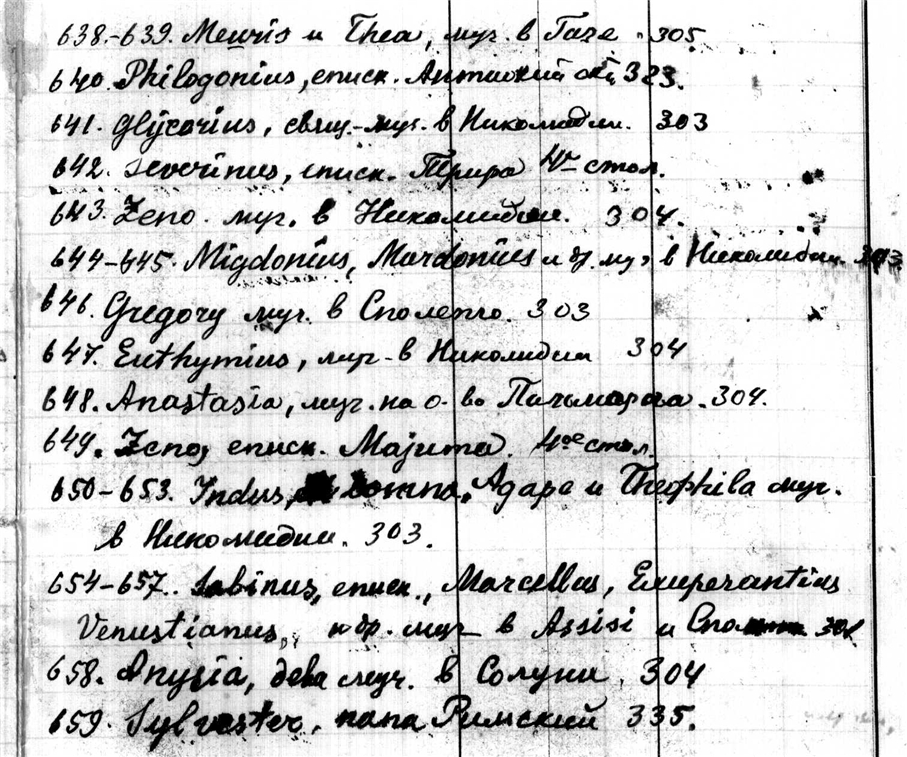 638-639. Meuris и Thea, муч. в Газе. 305
640. Philogonius, еписк. Антиохий 323.
641. Glycerius, свящ.-муч. в Никомидии. 303
642. Severinus, еписк. Трира 4 стол.
643. Zeno. муч. в Никомидии. 304.
644-645. Migdonius, Mardonius и др. муч. в Никомидии. 303
646. Gregory муч. в Сполето. 303
647. Euthymius, муч. в Никомидии 304
648. Anastasia, муч. на о-ве Пальмароза. 304.
649. Zeno, еписк. Majuma. 4ое стол.
650-653. Indus, Domna, Agape и Theophila муч.
в Никомидии. 303.
654-657. Sabinus, еписк., Marcellus, Exuperantius
Venustianus, и др. муч в Assisi и
658. Anysia, дева муч. в Солуни. 304
659. Sylvester, папа Римский 335.